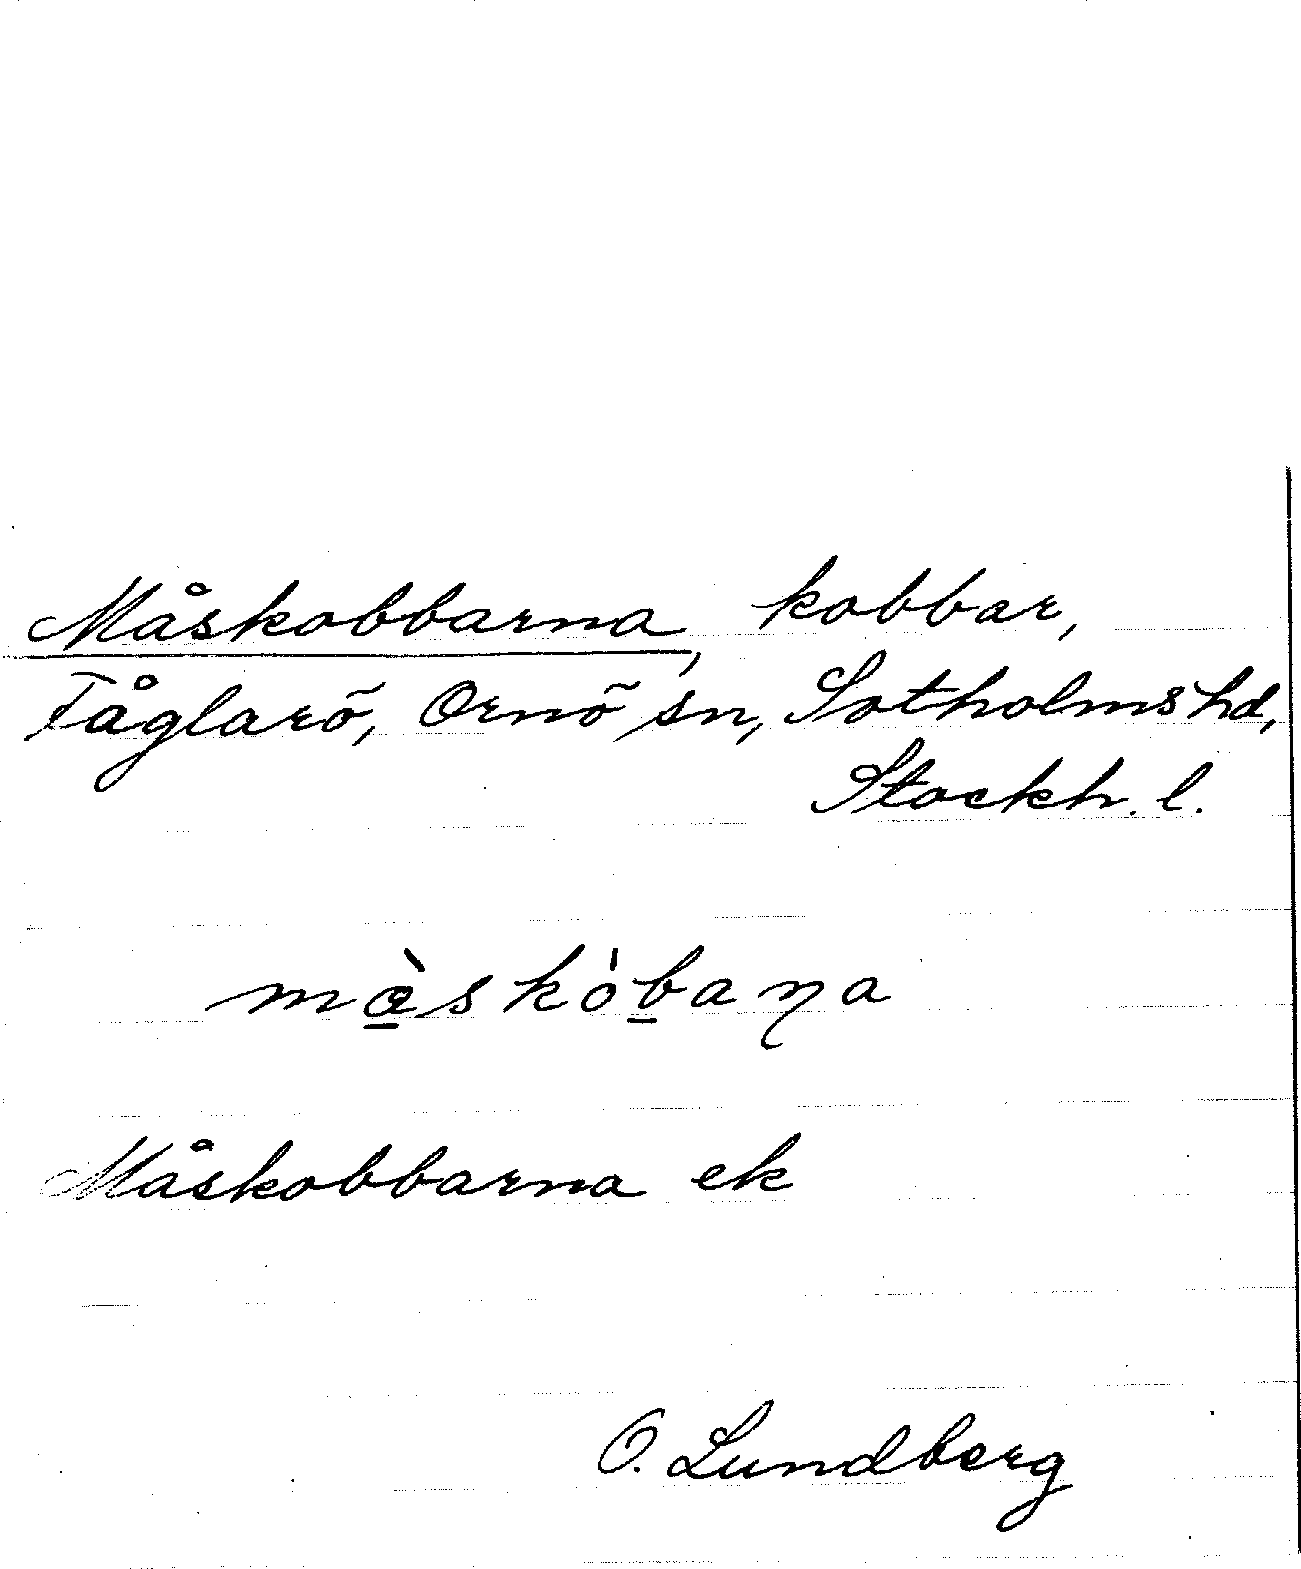 Måskobbarna, kobbar,
Fåglarö, Ornö sn, Sotholms hd,
Stockh. l.
Måskobbarna ek
O. Lundberg